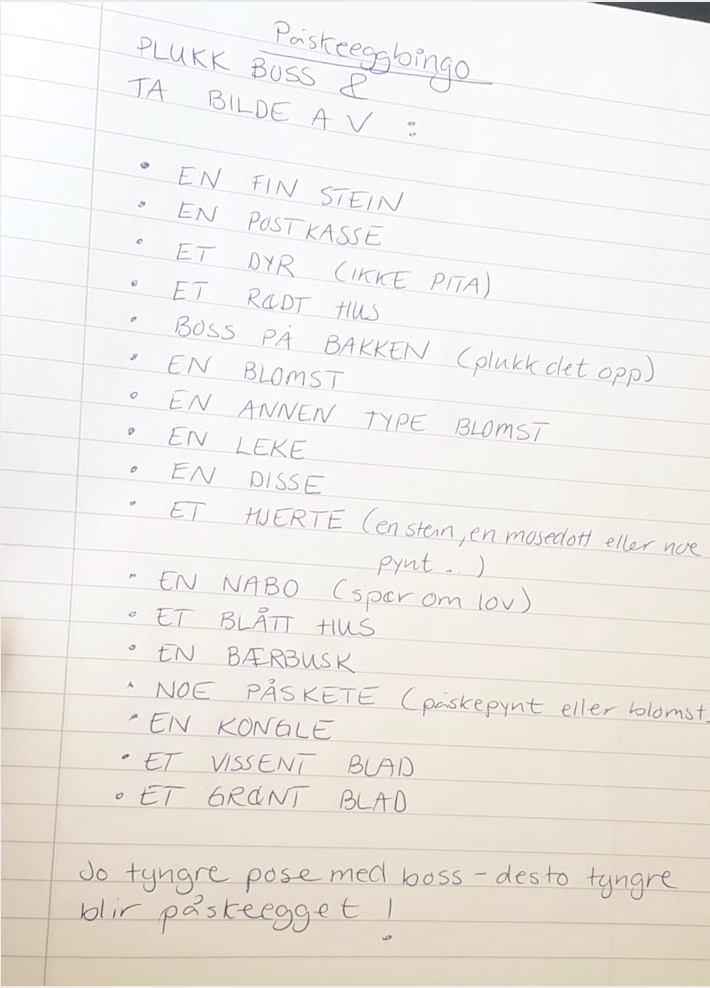 Påskeeggbingo
PLUKK BOSS &
TA BILDE AV :
• EN FIN STEIN
• EN POSTKASSE
• ET DYR (IKKE PITA)
• ET RØDT HUS
• BOSS PÅ BAKKEN (plukk det opp)
• EN BLOMST
• EN ANNEN TYPE BLOMST
• EN LEKE
• EN DISSE
• ET HJERTE (en stein, en mosedott eller noe
pynt ...)
• EN NABO (spør om lov)
• ET BLÅTT HUS
• EN BÆRBUSK
• NOE PÅSKETE (påskepynt eller blomst
• EN KONGLE
• ET VISSENT BLAD
• ET GRØNT BLAD
Jo tyngre pose med boss – desto tyngre
blir påskeegget !